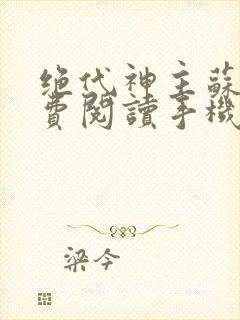 绝代神主蘇
費閱讀手機
梁今